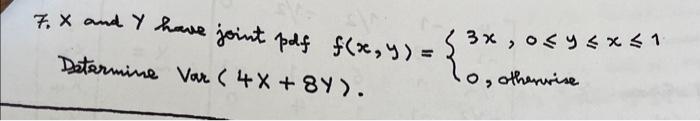 7. X and Y have joint pdf f(x,y) = { 3x , 0 ≤ y ≤ x ≤ 1
0, otherwise
Determine Var ( 4X + 8Y ).